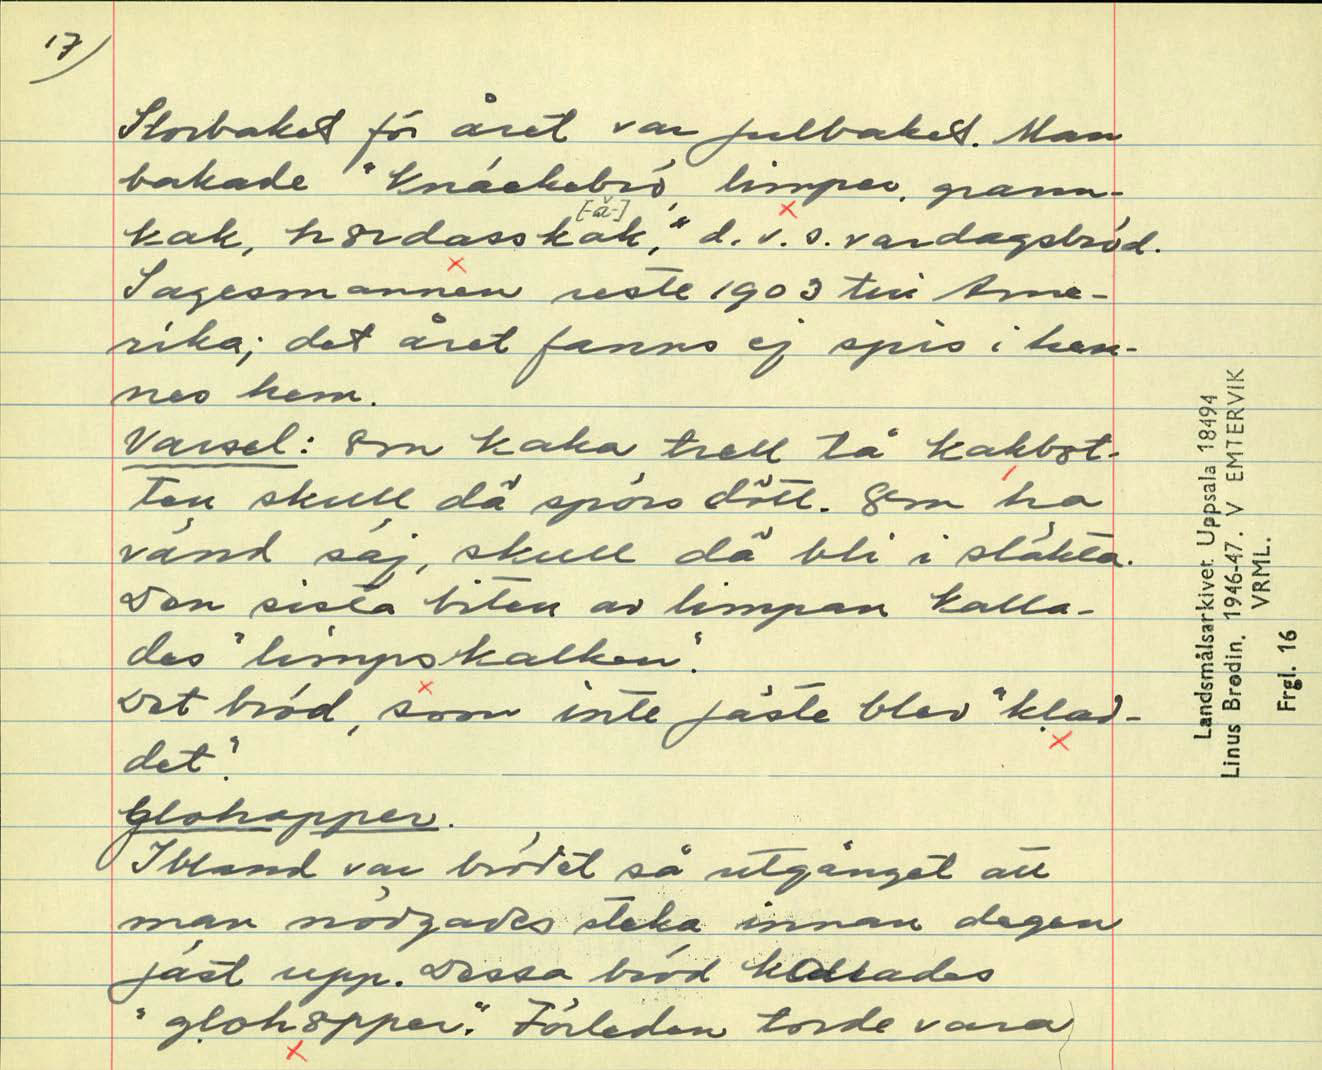 17)
Storbaket för året var julbaket. Man
bakade "knäckebrö, limper, grann-
[-ǎ-]
kak, hördasskak," d.v.s. vardagsbröd.
Sagesmannen reste 1903 till Ame-
rika; det året fanns ej spis i hen-
nes hem.
Varsel: Om kaka trell tå kakbot-
ten skull dä spörs dött. Om ha
vänd säj, skull dä bli i släkta.
Den sista biten av limpan kalla-
des "limpskalken".
Det bröd, som inte jäste blev "klad-
det".
Glohopper.
Ibland var brödet så utgånget att
man nödgades steka innan degen
jäst upp. Dessa bröd kallades
"glohopper". Förleden torde vara
Landsmålsarkivet Uppsala 18494
Linus Brodin. 1946-47. V EMTERVIK
VRML.
Frgl. 16